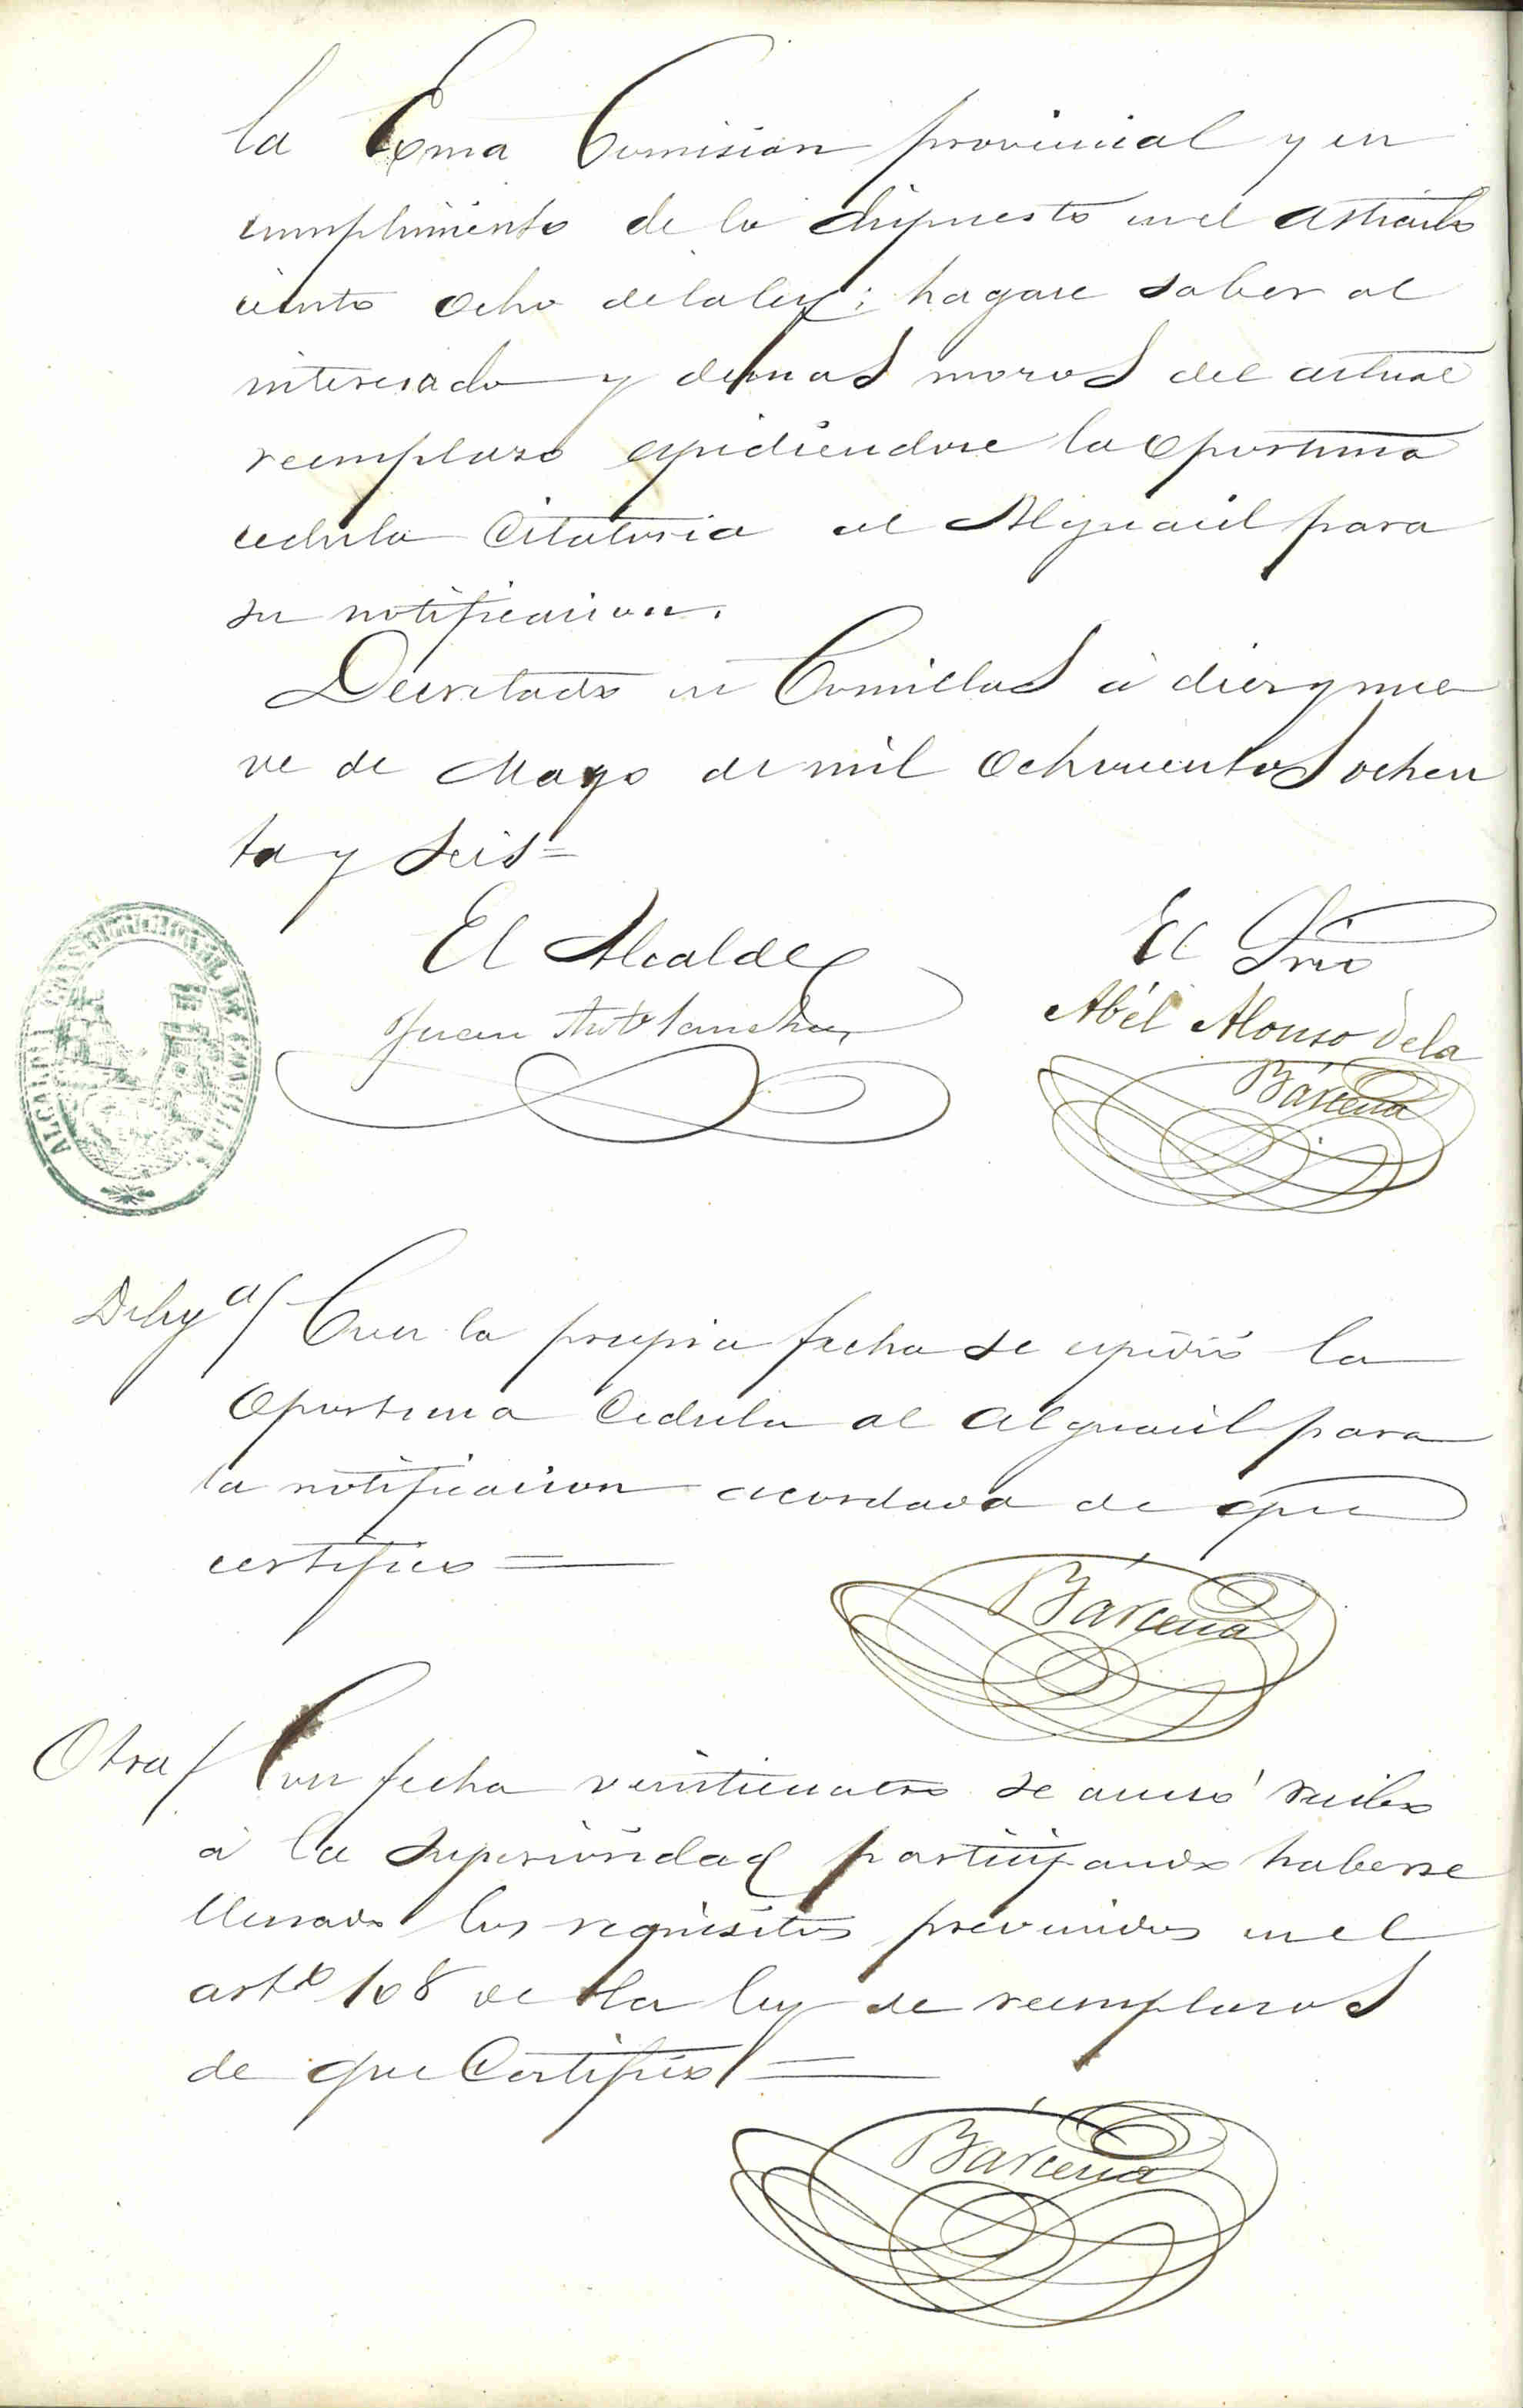 la Exma Comision provincial y en
cumplimiento de lo dispuesto en el articulo
ciento ocho de la ley; hagase saber al
interesado y demas mozos del actual
reemplazo expidiendose la oportuna
cedula Citatoria al Alguacil para
su notificacion.
Decretado en Comillas á diez y nue
ve de Mayo de mil ochocientos ochen
ta y seis=
El Alcalde
El Srio
Juan Anto Sanchez
Abél Alonso de la
Bárcena
ALCALDIA CONSTITUCIONAL DE COMILLAS
Dilig.a/ Con la propia fecha se espidió la
oportuna Cedula al alguacil para
la notificacion acordada de que
certifico=
Bárcena
Otra/ Con fecha veinticuatro se acusó recibo
á la Superioridad participando haberse
llenado los requisitos prevenidos en el
arto 108 de la ley de reemplazos
de que Certifico=
Bárcena